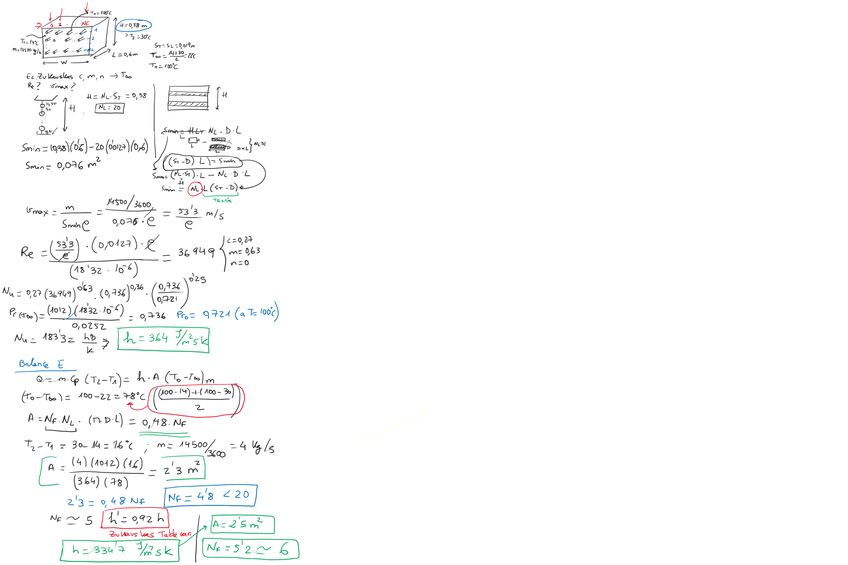 T₀ = 100°C
1 2 ... NF
H = 0,38 m
T₂ = 30°C
T₁ = 14°C
m = 14500 kg/h
L = 0,6 m
W
ST = SL = 0,019 m
T∞ = (14+30)/2 = 22°C
T₀ = 100°C
Ec. Zukauskas c, m, n → T∞
Re? vmax?
H = NL · ST = 0,38
NL = 20
H
H
Smin = H·L - NL · D · L
Smin = (0,38)(0'6) - 20 (0'0127)(0,6)
Smin = 0,076 m²
(ST - D) L = Smin
Smin = (NL·ST) · L - NL · D · L
Smin = NL L (ST - D)
vmax = m / (Smin ρ) = (14500/3600) / (0,076 · ρ) = 53'3 / ρ m/s
Re = ((53'3/ρ) · (0,0127) · ρ) / (18'32 · 10⁻⁶) = 36949 { c = 0,27 m = 0,63 n = 0
Nu = 0,27 (36949)^0'63 · (0,736)^0,36 · (0,736/0,721)^0'25
Pr (T∞) = (1012)(18'32·10⁻⁶) / 0,0252 = 0,736 Pr₀ = 0,721 (a T = 100°C)
Nu = 183'3 = hD/k ⇒ h = 364 J/m²sk
Balance E
Q = m·Cp (T₂-T₁) = h·A (T₀-T∞)m
(T₀-T∞) = 100-22 = 78°C (((100-14)+(100-30))/2)
A = NF · NL · (π·D·L) = 0,48 · NF
T₂-T₁ = 30-14 = 16°C ; m = 14500/3600 = 4 kg/s
A = (4)(1012)(16) / (364)(78) = 2'3 m²
2'3 = 0,48 NF NF = 4'8 < 20
NF ≃ 5 h' = 0,92 h
A = 2'5 m²
h = 334'7 J/m²sk
NF = 5'2 ≃ 6